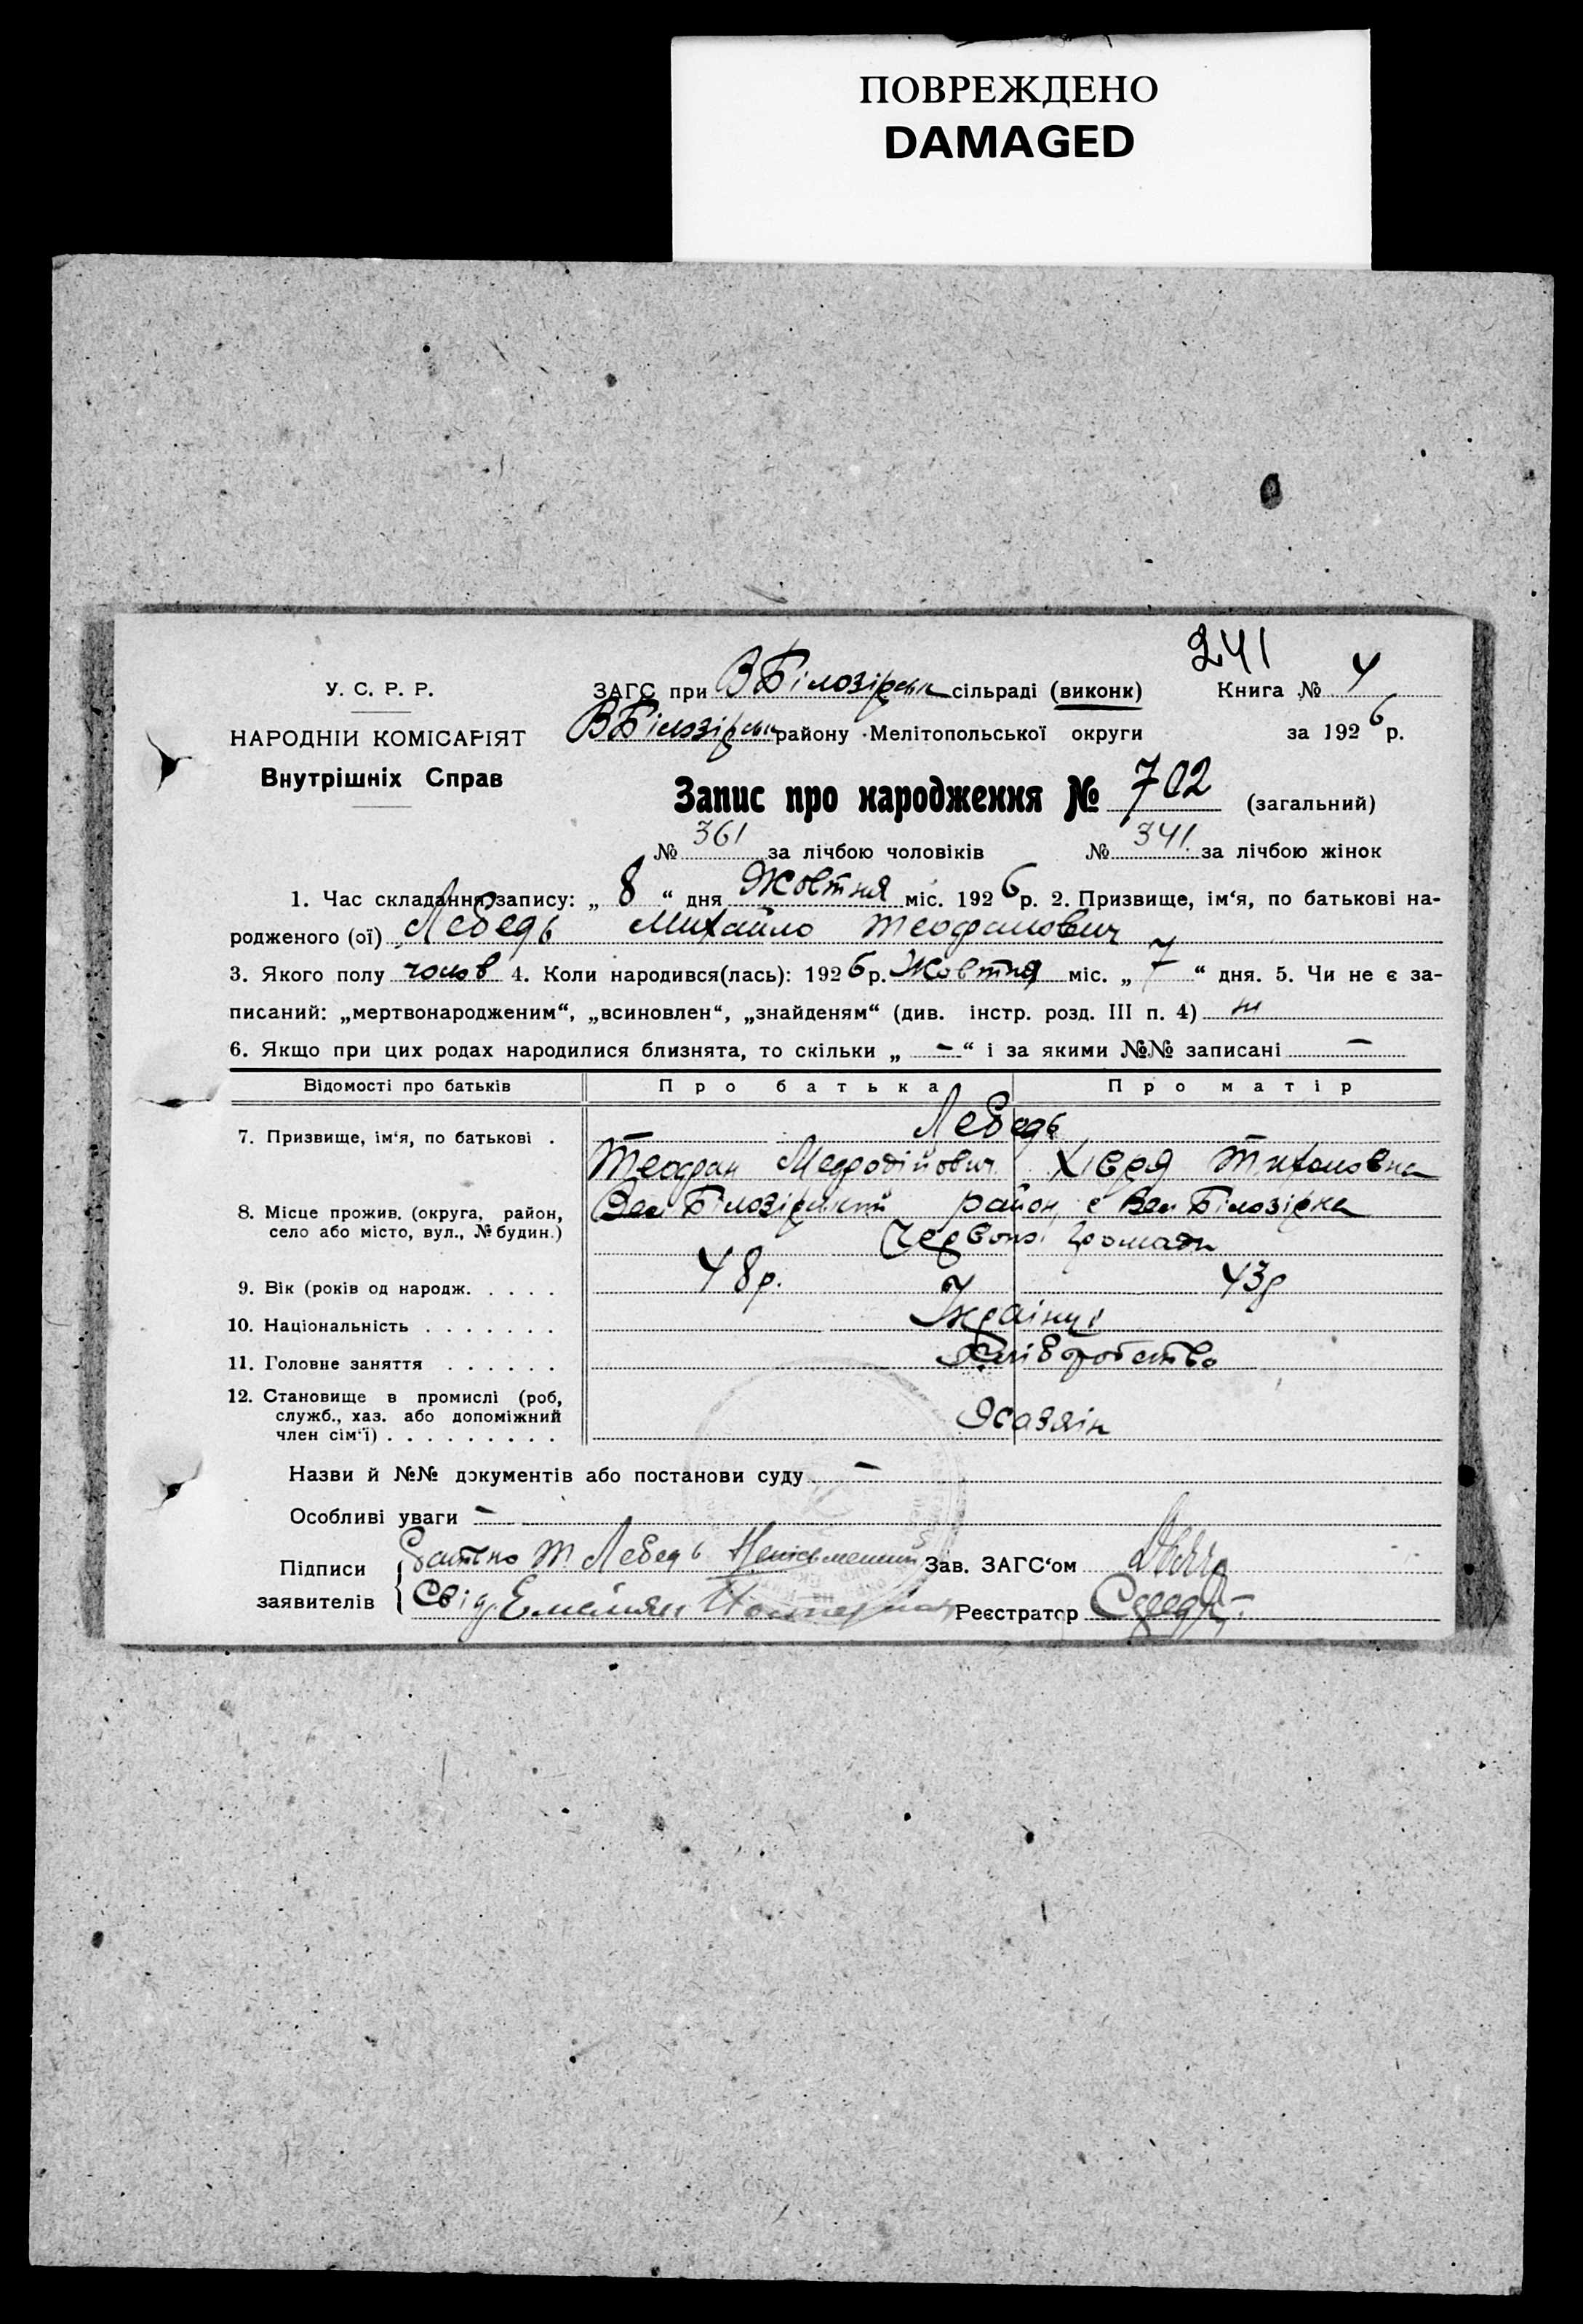 ПОВРЕЖДЕНО
DAMAGED
241
У. С. Р. Р.
ЗАГС при В Білозірськ сільраді (виконк) Книга № 4
НАРОДНІЙ КОМІСАРІЯТ
В Білозірськ району Мелітопольської округи за 1926 р.
Внутрішніх Справ
Запис про народження № 702 (загальний)
№ 361 за лічбою чоловіків № 341. за лічбою жінок
1. Час складання запису: „ 8 “ дня Жовтня міс. 1926 р. 2. Призвище, ім‘я, по батькові на-
родженого (ої) Лебедь Михайло Теофанович
3. Якого полу чолов 4. Коли народився(лась): 1926 р. Жовтня міс. „ 7 “ дня. 5. Чи не є за-
писаний: „мертвонародженим“, „всиновлен“, „знайденям“ (див. інстр. розд. III п. 4) ні
6. Якщо при цих родах народилися близнята, то скільки „ — “ і за якими №№ записані —
Відомості про батьків Про батька Про матір
7. Призвище, ім‘я, по батькові . Лебедь
Теофан Мефодійович Хівря Тихоновна
8. Місце прожив. (округа, район, село або місто, вул., № будин.) Вел Білозірський район, с Вел Білозірка
Червоної Громади
9. Вік (років од народж. . . . . 48 р. 43 р
10. Національність . . . . . . . Українці
11. Головне заняття . . . . . . Хліборобство
12. Становище в промислі (роб,
служб., хаз. або допоміжний
член сім‘ї) . . . . . . . . . Хазяїн
Назви й №№ документів або постанови суду —
Особливі уваги —
Підписи Батько Т. Лебедь Неписьменний Зав. ЗАГС‘ом
заявителів Свід. Емельян Реєстратор